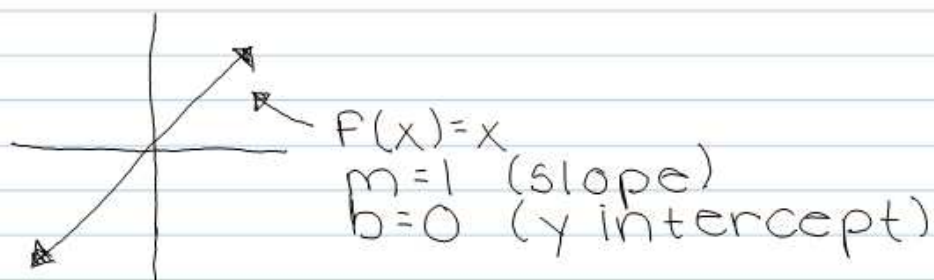 F(x)=x
m=1 (slope)
b=0 (y intercept)